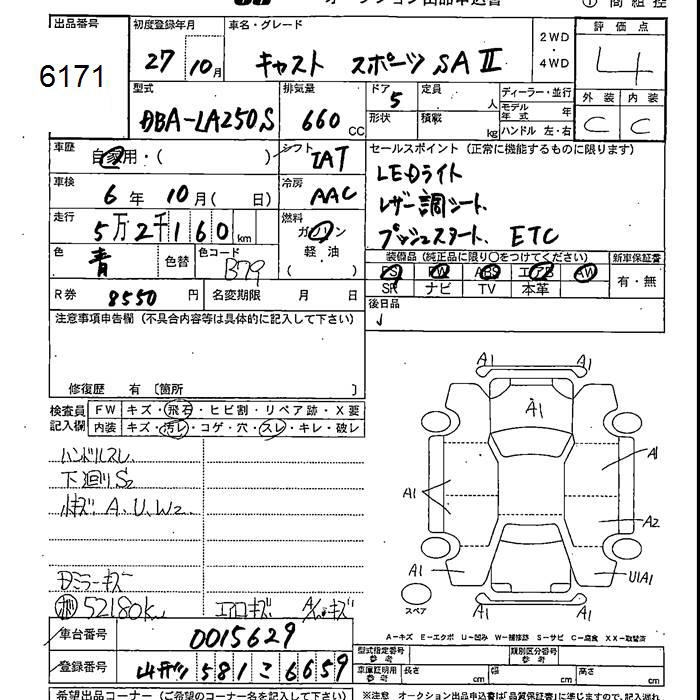 オークション出品申込書
出品番号 初度登録年月 車名・グレード 2WD・4WD 評価点
6171 27 10月 キャスト スポーツ SAⅡ 4
型式 排気量 ドア 定員 ディーラー・並行 外装 内装
DBA-LA250S 660CC 5 人 モデル年式 年 C C
形状 積載 kg ハンドル 左・右
車歴 自家用・( ) シフト IAT セールスポイント(正常に機能するものに限ります)
車検 6年 10月( 日) 冷房 AAC LEDライト
レザー調シート.
走行 5万2千160km 燃料 ガソリン 軽・油 ( ) プッシュスタート. ETC
色 青 色替 色コード B79
装備品(純正品に限り○をつけてください) 新車保証書
PS PW ABS エアB AW 有・無
SR ナビ TV 本革
R券 8550円 名変期限 月 日 後日品
注意事項申告欄(不具合内容等は具体的に記入して下さい)
修復歴 有〔箇所 〕
検査員記入欄 FW キズ・飛石・ヒビ割・リペア跡・X要
内装 キズ・汚レ・コゲ・穴・スレ・キレ・破レ
ハンドルスレ
下廻りS2
小キズ A、U、W2
Dミラーキズ
52180km エアロキズ A/Wキズ
A1 A1
A1
A1 A1
A2
A1 U1A1
スペア
A1 A1
A-キズ E-エクボ U-凹み W-補修跡 S-サビ C-腐食 XX-取替済
車台番号 0015629
型式指定番号 参考 類別区分番号 参考
登録番号 581 こ 6659
車庫証明用 参考 長さ cm 幅 cm 高さ cm
希望出品コーナー(ご希望のコーナー名を記入して下さい)
※注意 オークション出品申込書は「品質保証書」に準じますので、記入漏れ